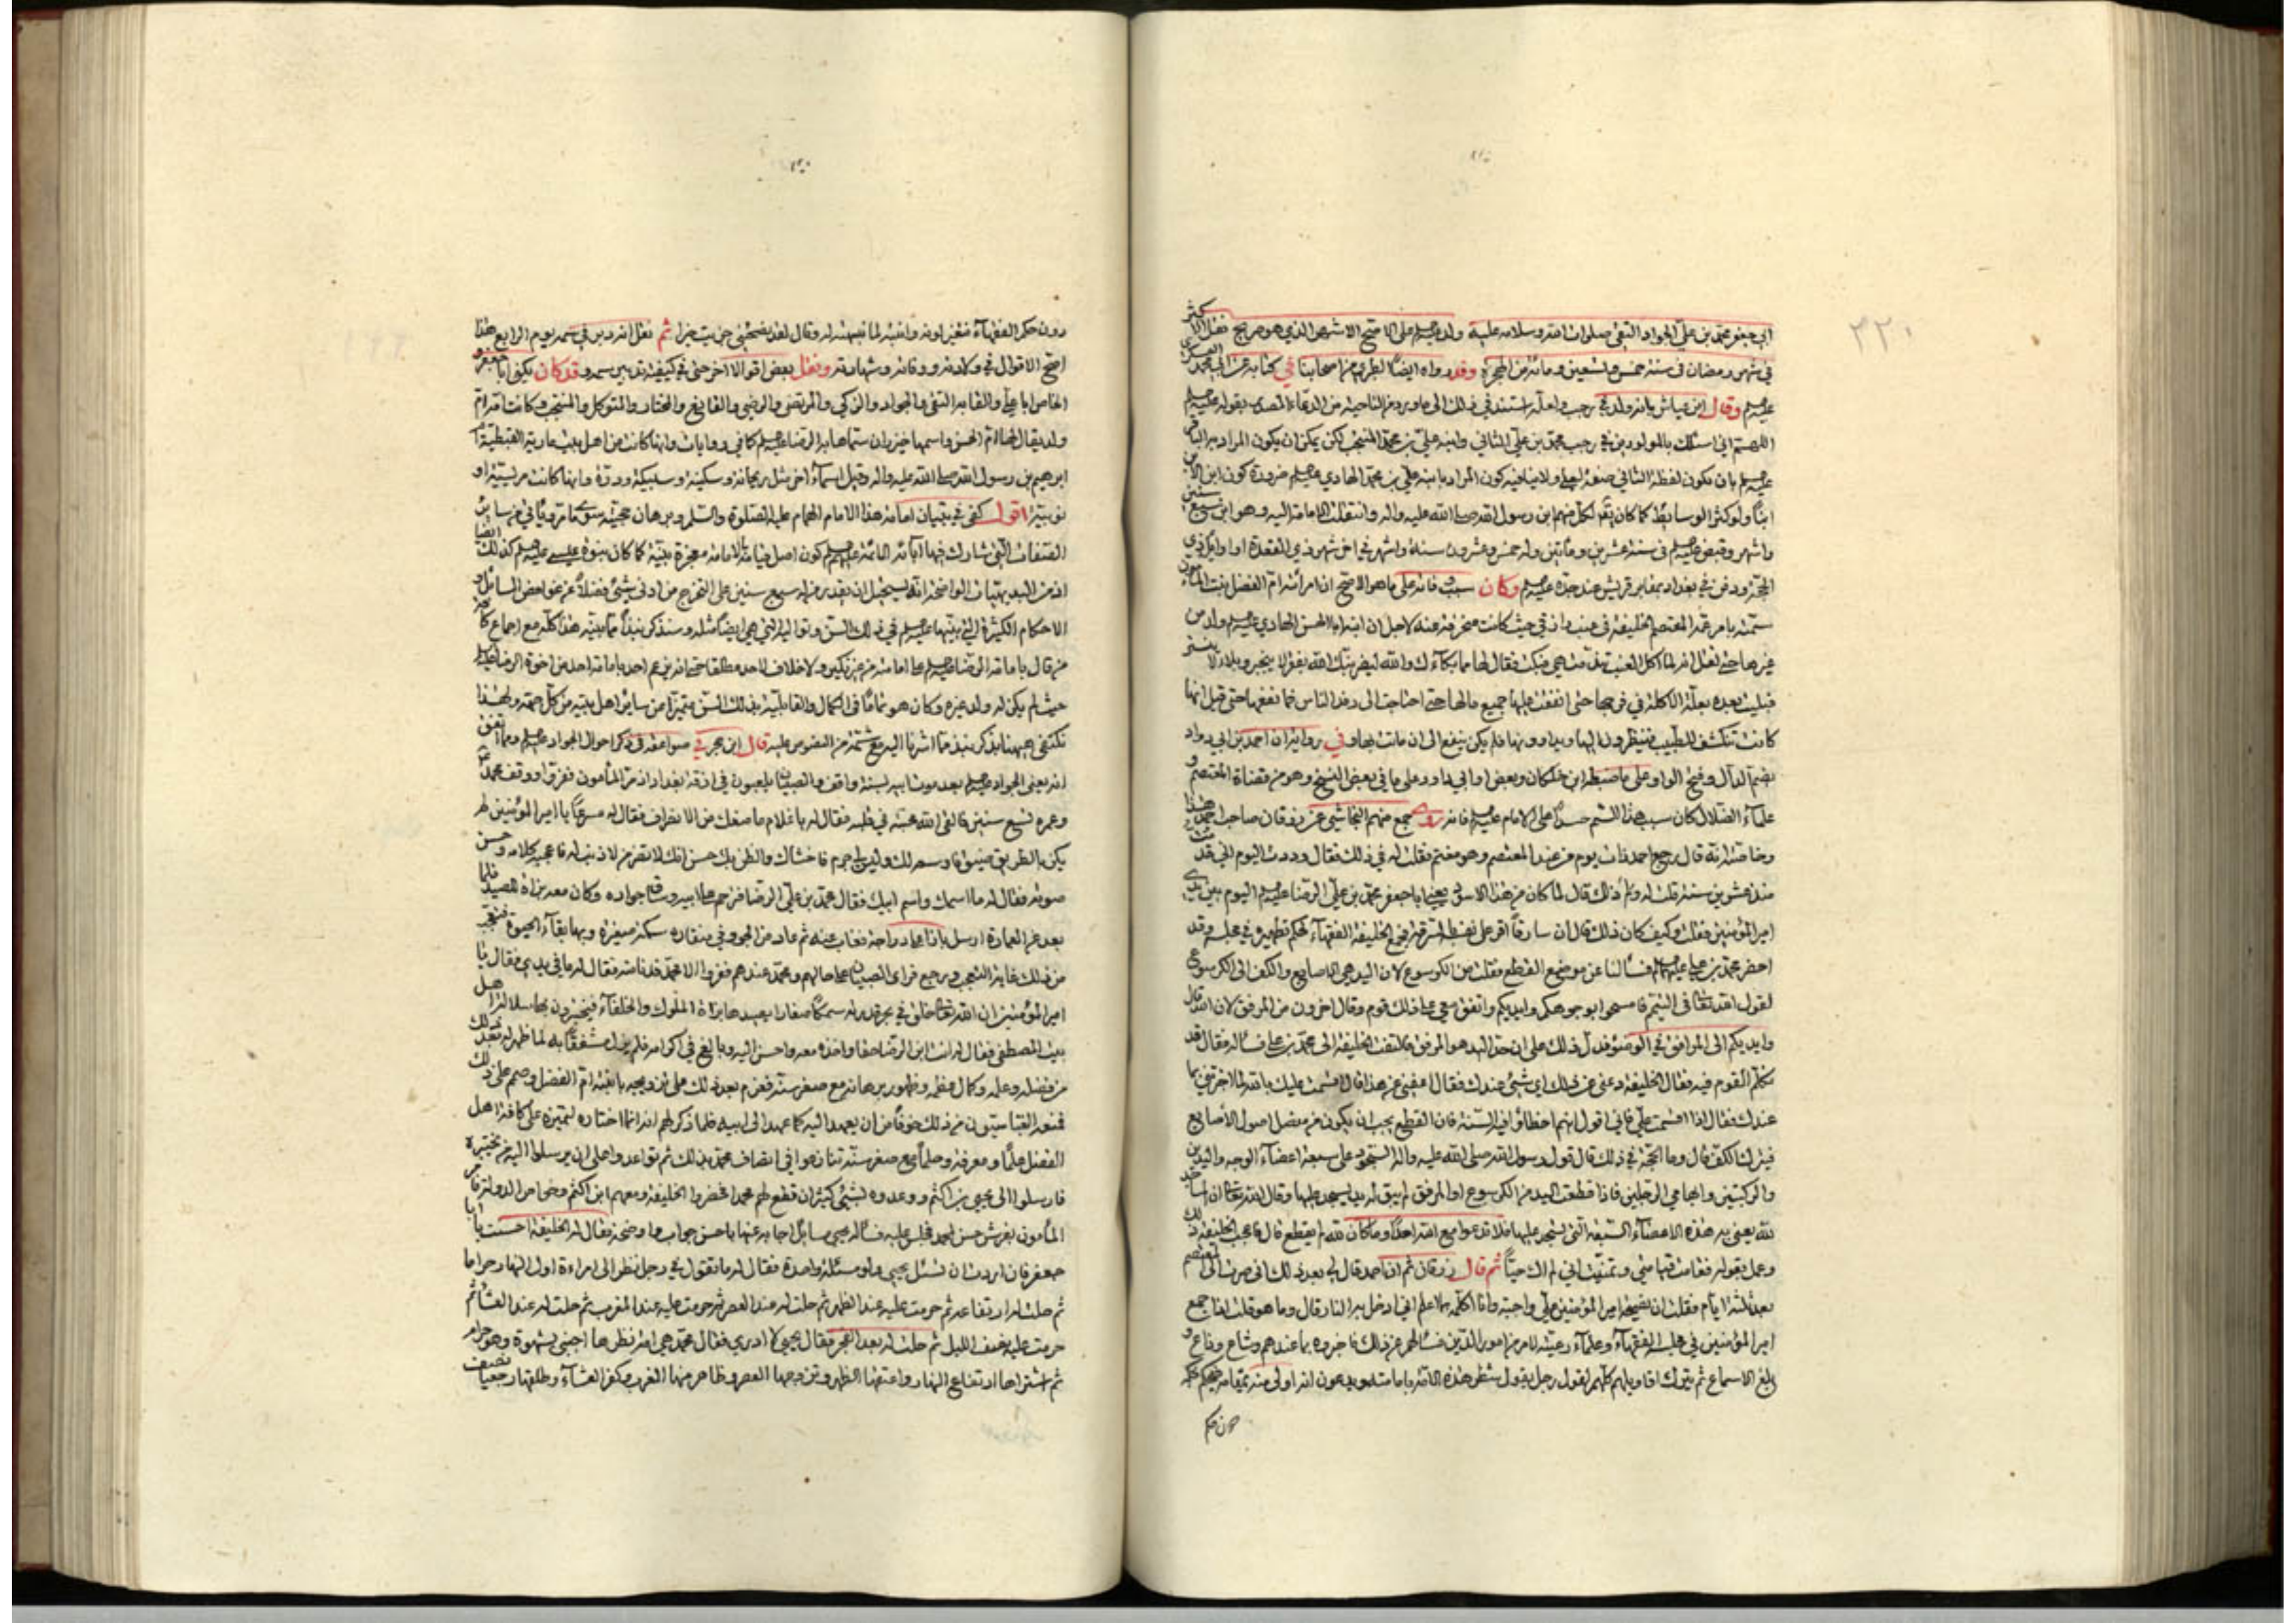 ٢٢٠
ابي جعفر محمد بن علي الجواد التقي صلوات الله وسلامه عليه ولد عليه السلام على الاصح الاشهر الذي هو صريح نقل الاكثر
في شهر رمضان في سنة خمس وتسعين ومائة من الهجرة وقد رواه ايضا الطبري من اصحابنا في كتابه عن ابي محمد العسكري
عليه السلام وقال ابن عياش بانه ولد في رجب ولعله استند في ذلك الى ما ورد من الناحية من الدعاء المصدر بقوله عليه السلام
اللهم اني اسئلك بالمولودين في رجب محمد بن علي الثاني وابنه علي بن محمد المنتجب لكن يمكن ان يكون المراد به الباقر
عليه السلام بان يكون لفظة الثاني صفة لعلي ولا ينافيه كون المراد بابنه علي بن محمد الهادي عليه السلام ضرورة كون ابن الابن
ابنا ولو كثر الوسايط كما كان يقال لكل منهم ابن رسول الله صلى الله عليه واله وانتقلت الامامة اليه وهو ابن سبع سنين
واشهر وقبض عليه السلام في سنة عشرين ومأتين وله خمس وعشرون سنة واشهر في اخر شهر ذي القعدة او اوايل ذي
الحجة ودفن في بغداد بمقابر قريش عند جده عليه السلام وكان سبب وفاته على ما هو الاصح ان امرأته ام الفضل بنت المأمون
سمته بامر عمه المعتصم الخليفة في عنب رازقي حيث كانت منحرفة عنه لاجل ان ابنه ابا الحسن الهادي عليه السلام ولد من
غيرها حتى نقل انه لما اكل العنب ندمت هي فبكت فقال لها ما بكاءك والله ليضربنك الله بفقر لا ينجبر وبلاء لا يستتر
فبليت بعده بعلة الاكلة في فرجها حتى انفقت عليها جميع مالها حتى احتاجت الى رفد الناس فما نفعها حتى قيل انها
كانت تنكشف للطبيب فينظرون اليها ويداوونها فلم يكن ينفع الى ان ماتت بها وفي رواية ان احمد بن ابي دواد
بضم الدال وفتح الواو على ما ضبطه ابن خلكان وبعض او ابي داود على ما في بعض النسخ وهو من قضاة المعتصم و
علماء الضلال كان سبب هذا السم حسدا على الامام عليه السلام فانه روى جمع منهم النجاشي عن زرقان صاحب احمد هذا
وخاصته انه قال رجع احمد ذات يوم من عند المعتصم وهو مغتم فقلت له في ذلك فقال وددت اليوم اني قد مت
منذ عشرين سنة قلت له ولم ذلك قال لما كان من هذا الاسود يعني ابا جعفر محمد بن علي الرضا عليه السلام اليوم بين يدي
امير المؤمنين فقلت وكيف كان ذلك قال ان سارقا اقر على نفسه بالسرقة فجمع الخليفة الفقهاء لحكم تطهيره في مجلسه وقد
احضر محمد بن علي عليهما السلام فسألنا عن موضع القطع فقلت من الكرسوع لان اليد هي الاصابع والكف الى الكرسوع
لقول الله تعالى في التيمم فامسحوا بوجوهكم وايديكم واتفق معي على ذلك قوم وقال اخرون من المرفق لان الله قال
وايديكم الى المرافق في الوضوء فدل ذلك على ان حد اليد هو المرفق فالتفت الخليفة الى محمد بن علي فسأله فقال قد
تكلم القوم فيه فقال الخليفة دعني عن ذلك اي شئ عندك فقال اعفني عن هذا قال اقسمت عليك بالله لما اخبرتني بما
عندك فقال اذا اقسمت علي فاني اقول انهم اخطأوا فيه السنة فان القطع يجب ان يكون من مفصل اصول الاصابع
فيترك الكف قال وما الحجة في ذلك قال قول رسول الله صلى الله عليه واله السجود على سبعة اعضاء الوجه واليدين
والركبتين وابهامي الرجلين فاذا قطعت اليد من الكرسوع او المرفق لم يبق له يد يسجد عليها وقال الله تعالى ان المساجد
لله يعني به هذه الاعضاء السبعة التي يسجد عليها فلا تدعوا مع الله احدا وما كان لله لم يقطع قال فاعجب الخليفة ذلك
وعمل بقوله فقامت قيامتي وتمنيت اني لم اك حيا ثم قال زرقان ثم ان احمد قال لي بعد ذلك اني صرت الى المعتصم
بعد ثلثة ايام فقلت ان نصيحة امير المؤمنين علي واجبة وانا اكلمه بما اعلم اني ادخل به النار قال وما هو قلت اذا جمع
امير المؤمنين في مجلسه الفقهاء وعلماء رعيته لامر من امور الدين فسألهم عن ذلك فاخبروه بما عندهم وشاع وذاع و
بلغ الاسماع ثم يترك اقاويلهم كلهم لقول رجل يقول شطر هذه الامة بامامته ويدعون انه اولى منه بمقامه فيحكم بحكمه
دون حكم
دون حكم الفقهاء فتغير لونه وانتبه لما نبهته له وقال لقد نصحتني جزيت خيرا ثم نقل انه دبر في سمه يوم الرابع هذا
اصح الاقوال في ولادته ووفاته وشهادته ونقل بعض اقوالا اخر حتى في كيفية تدبير سمه وقد كان يكنى ابا جعفر
الخاص ابا علي والقابه التقي والجواد والزكي والمرتضى والرضي والقانع والمختار والمتوكل والمنتجب وكانت امه ام
ولد يقال لها ام الحسن واسمها خيزران سماها به الرضا عليه السلام كما في روايات وانها كانت من اهل بيت مارية القبطية ام
ابرهيم بن رسول الله صلى الله عليه واله وقيل اسماء اخر مثل ريحانة وسكينة وسبيكة ودرة وانها كانت مريسية او
نوبية اقول كفى في تبيان امامة هذا الامام الهمام عليه الصلوة والسلم وبرهان حجيته سوى ما مر ويأتي من ساير
الصفات التي شارك فيها ابائه الائمة عليهم السلام كون اصل قيامه بالامامة معجزة بينة كما كان نبوة عيسى عليه السلام كذلك ايضا
اذ من البديهيات الواضحة انه يستحيل ان يقدر من له سبع سنين على التخرج من ادنى شئ فضلا عن غوامض المسائل و
الاحكام الكثيرة التي بينها عليه السلام في ذلك السن وتواليه التي هي ايضا مثله وسنذكر نبذا مما بينه هذا كله مع اجماع كل
من قال بامامة الرضا عليه السلام على امامته من غير نكير ولا خلاف لاحد مطلقا حتى انه لم يزعم احد بامامة احد من اخوة الرضا عليه السلام
حيث لم يكن له ولد غيره وكان هو تماما في الكمال والقابلية بذلك السن متميزا من ساير اهل بيته من كل جهة ولهذا
نكتفي ههنا بذكر نبذ مما اشرنا اليه مع شمة من النصوص عليه قال ابن حجر في صواعقه في ذكر احوال الجواد عليه السلام ومما اتفق
انه يعني الجواد عليه السلام بعد موت ابيه بسنة واقف والصبيان يلعبون في ازقة بغداد اذ مر المأمون ففروا ووقف محمد
وعمره تسع سنين فالقى الله محبته في قلبه فقال له يا غلام ما منعك من الانصراف فقال له مسرعا يا امير المؤمنين لم
يكن بالطريق ضيق فاوسعه لك وليس لي جرم فاخشاك والظن بك حسن انك لا تضر من لا ذنب له فاعجبه كلامه وحسن
صورته فقال له ما اسمك واسم ابيك فقال محمد بن علي الرضا فترحم على ابيه وساق جواده وكان معه بزاة للصيد فلما
بعد عن العمارة ارسل بازا على دراجة فغاب عنه ثم عاد من الجو وفي منقاره سمكة صغيرة وبها بقاء الحيوة فتعجب
من ذلك غاية التعجب ورجع فراى الصبيان على حالهم ومحمد عندهم ففروا الا محمد فدنا منه فقال له ما في يدي فقال يا
امير المؤمنين ان الله تعالى خلق في بحر قدرته سمكا صغارا يصيدها بزاة الملوك والخلفاء فيختبرون بها سلالة اهل
بيت المصطفى فقال له انت ابن الرضا حقا واخذه معه واحسن اليه وبالغ في اكرامه فلم يزل مشفقا به لما ظهر له بعد ذلك
من فضله وعلمه وكمال عظمته وظهور برهانه مع صغر سنه فعزم بعد ذلك على تزويجه بابنته ام الفضل وصمم على ذلك
فمنعه العباسيون من ذلك خوفا من ان يعهد اليه كما عهد الى ابيه فلما ذكر لهم انه انما اختاره لتميزه على كافة اهل
الفضل علما ومعرفة وحلما مع صغر سنه تنازعوا في اتصاف محمد بذلك ثم تواعدوا على ان يرسلوا اليه من يختبره
فارسلوا الى يحيى بن اكثم ووعدوه بشئ كثير ان قطع لهم محمدا فحضروا الخليفة ومعهم ابن اكثم وخواص الدولة فامر
المأمون بفرش حسن لمحمد فجلس عليه فسأله يحيى مسايل اجابه عنها باحسن جواب واوضحه فقال له الخليفة احسنت يا ابا
جعفر فان اردت ان تسئل يحيى ولو مسئلة واحدة فقال له ما تقول في رجل نظر الى امراءة اول النهار حراما
ثم حلت له ارتفاعه ثم حرمت عليه عند الظهر ثم حلت له عند العصر ثم حرمت عليه عند المغرب ثم حلت له عند العشاء ثم
حرمت عليه نصف الليل ثم حلت له بعد الفجر فقال يحيى لا ادري فقال محمد هي امة نظرها اجنبي بشهوة وهو حرام
ثم اشتراها ارتفاع النهار واعتقها الظهر وتزوجها العصر وظاهر منها المغرب وكفر العشاء وطلقها رجعيا نصف